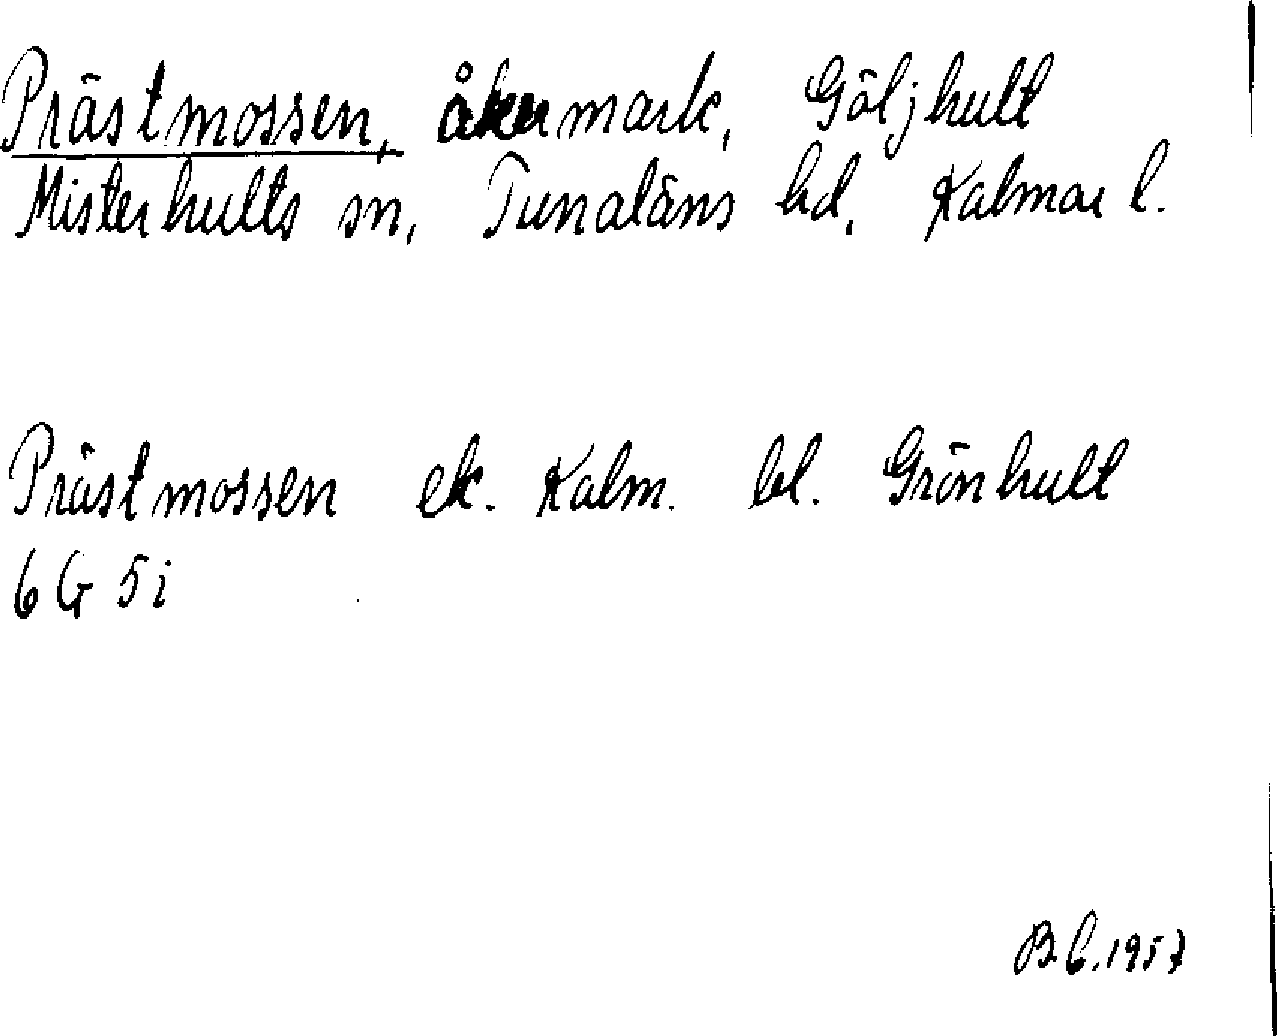 Prästmossen, åkermark, Göljhult
Misterhults sn, Tunaläns hd, Kalmar l.
Prästmossen ek. Kalm. bl. Grönhult
6 G 5 i
B. C. 1957